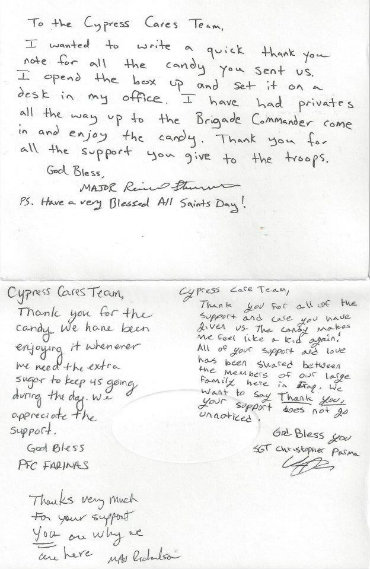 To the Cypress Cares Team,
I wanted to write a quick thank you
note for all the candy you sent us.
I opend the box up and set it on a
desk in my office. I have had privates
all the way up to the Brigade Commander come
in and enjoy the candy. Thank you for
all the support you give to the troops.
God Bless,
MAJOR
PS. Have a very Blessed All Saints Day!
Cypress Cares Team,
Thank you for the
candy. We hane been
enjoying it whenever
we need the extra
sugar to keep us going
during the day. We
appreciate the
support.
God Bless
PFC FARINAS
Cypress Care Team,
Thank you for all of the
support and care you have
given us. The candy makes
me feel like a kid again!
All of your support and love
has been shared between
the members of our large
family here in Iraq. We
want to say Thank you,
your support does not go
unnoticed
God Bless you
SGT Christopher
Thanks very much
For your support
You are why we
are here MAJ Richardson